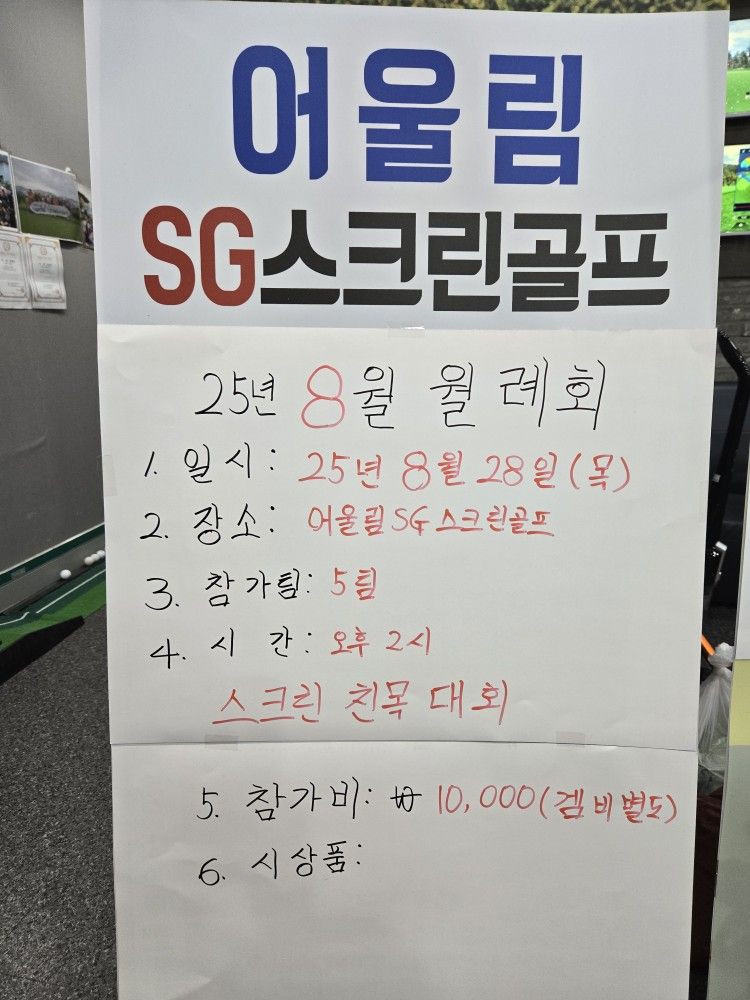 어울림
SG스크린골프
25년 8월 월례회
1. 일시: 25년 8월 28일(목)
2. 장소: 어울림SG스크린골프
3. 참가팀: 5팀
4. 시 간: 오후 2시
스크린 친목 대회
5. 참가비: ₩ 10,000(겜비별도)
6. 시상품: